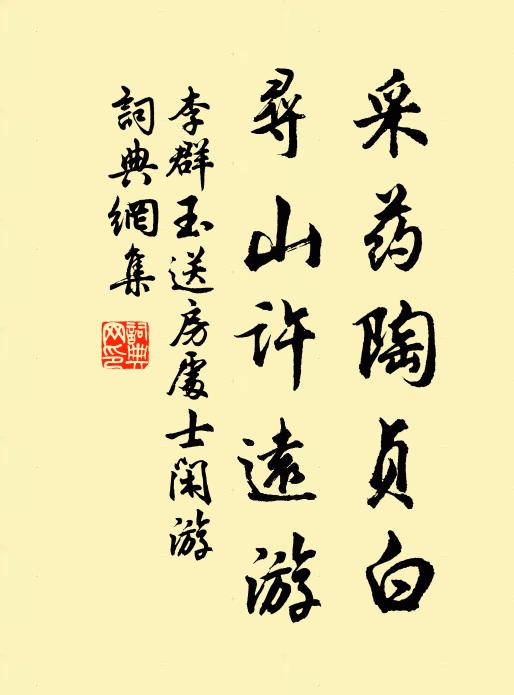 采药陶贞白
尋山许遠游
李群玉送房處士閑游
詞典網集
詞典网印